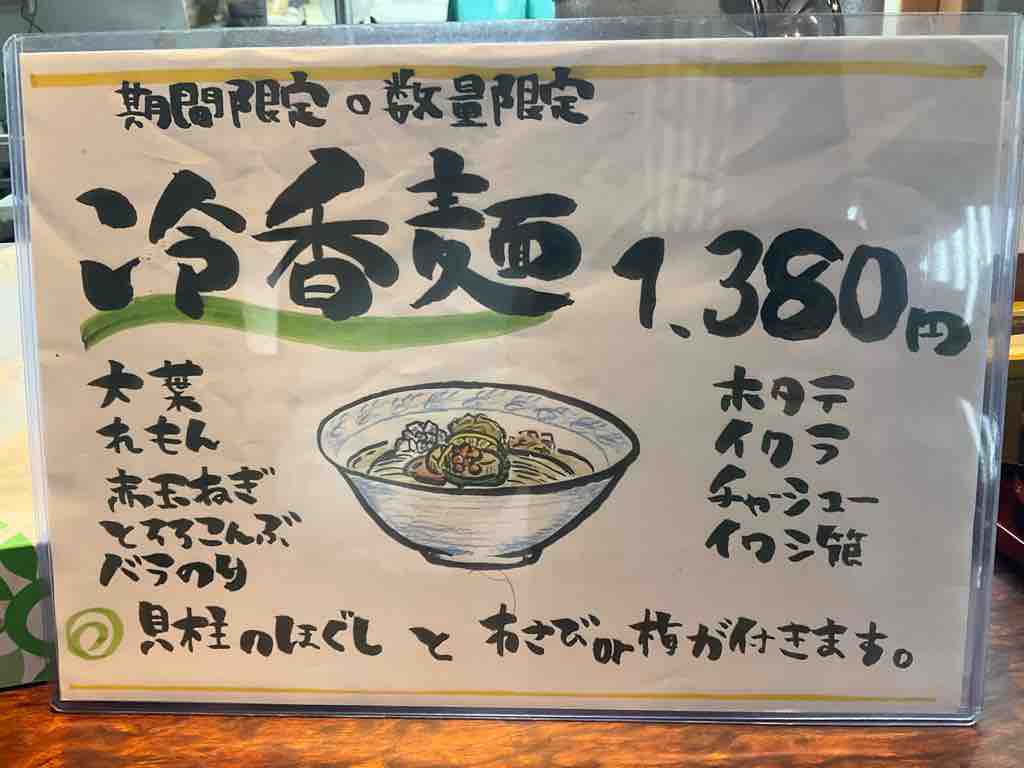 期間限定。数量限定
冷香麺 1,380円
大葉
れもん
赤玉ねぎ
とろろこんぶ
バラのり
ホタテ
イクラ
チャーシュー
イワシ節
貝柱のほぐしとわさびor梅が付きます。